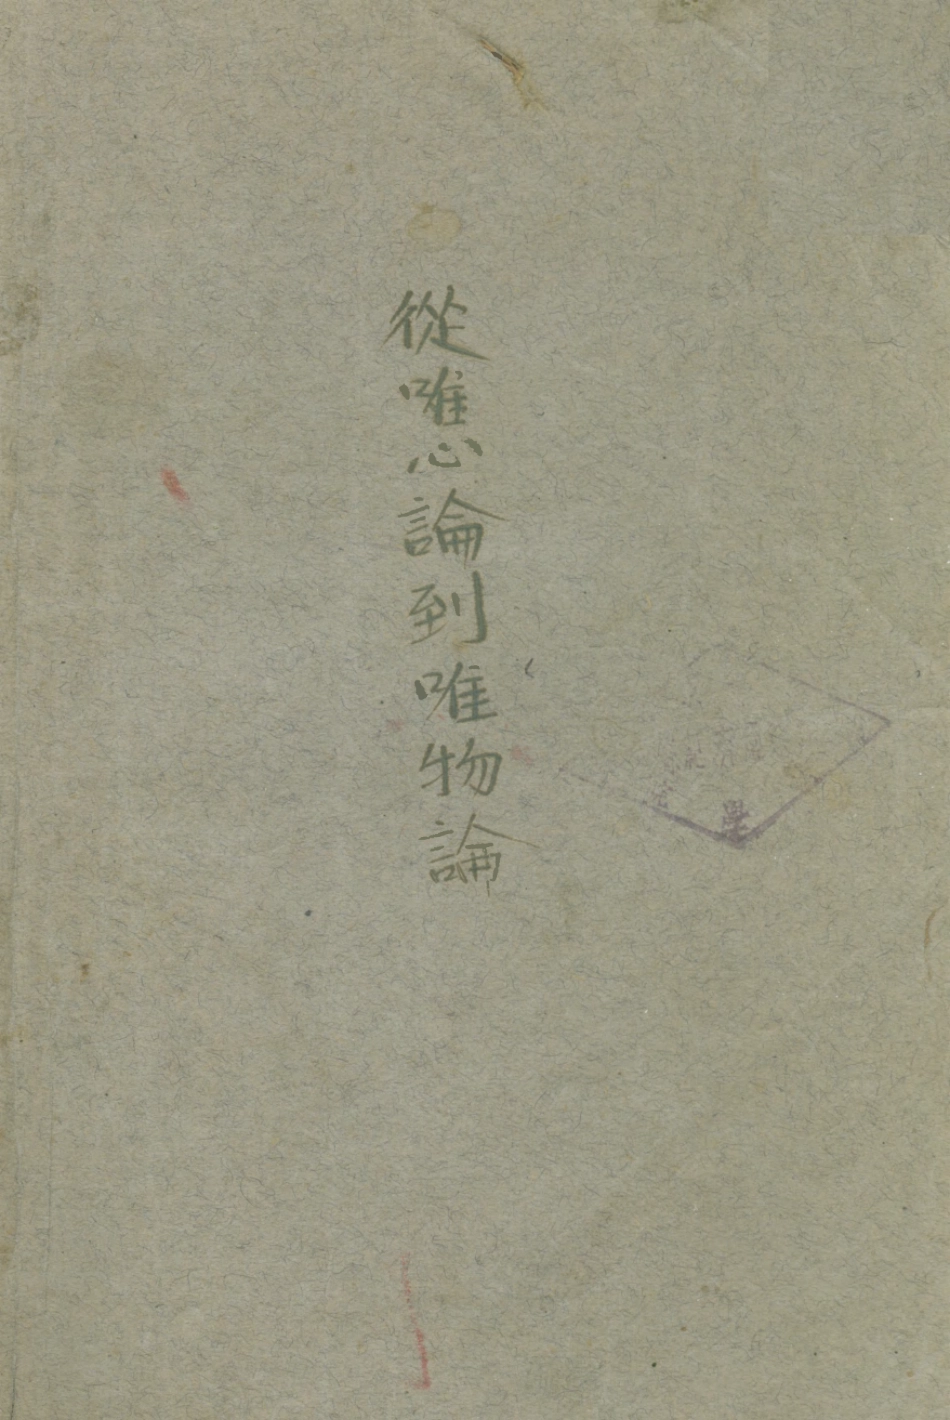 從唯心論到唯物論